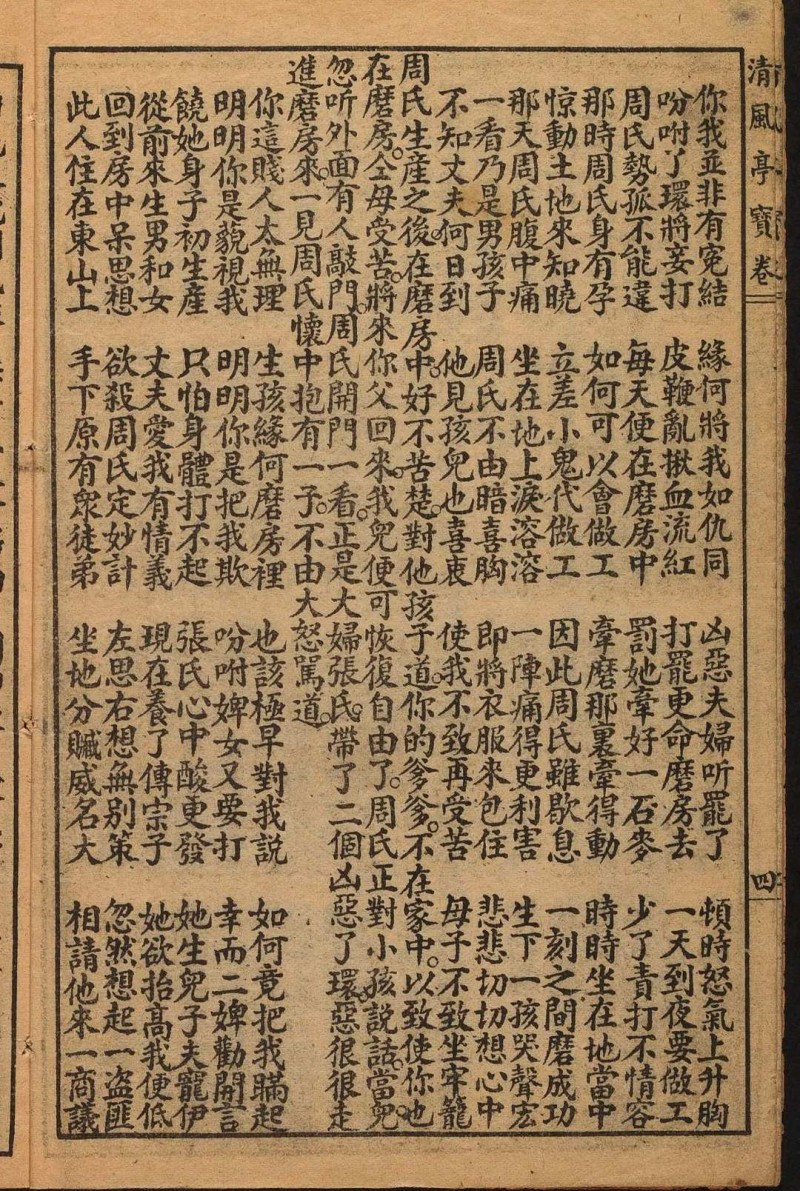 清風亭寶卷
四
你我並非有冤結　緣何將我如仇同　凶惡夫婦听罷了　頓時怒氣上升胸
吩咐了環將妾打　皮鞭亂揪血流紅　打罷更命磨房去　一天到夜要做工
周氏勢孤不能違　每天便在磨房中　罰她牽好一石麥　少了責打不情容
那時周氏身有孕　如何可以會做工　牽磨那裏牽得動　時時坐在地當中
惊動土地來知曉　立差小鬼代做工　因此周氏雖歇息　一刻之間磨成功
那天周氏腹中痛　坐在地上淚溶溶　一陣痛得更利害　生下一孩哭聲宏
一看乃是男孩子　周氏不由暗喜胸　即將衣服來包住　悲悲切切想心中
不知丈夫何日到　他見孩兒也喜衷　使我不致再受苦　母子不致坐牢籠
周氏生産之後在磨房中。好不苦楚。對他孩子道。你的爹爹。不在家中。以致使你也
在磨房。仝母受苦。將來你父回來。我兒便可恢復自由了。周氏正對小孩說話。當兒
忽听外面有人敲門。周氏開門一看。正是大婦張氏。帶了二個凶惡了環。惡很很走
進磨房來。一見周氏懷中抱有一子。不由大怒罵道。
你這賤人太無理　生孩緣何磨房裡　也該極早對我説　如何竟把我瞞起
明明你是藐視我　明明你是把我欺　吩咐婢女又要打　幸而二婢勸開言
饒她身子初生産　只怕身體打不起　張氏心中酸更發　她生兒子夫寵伊
從前來生男和女　丈夫愛我有情義　現在養了傳宗子　她欲抬高我便低
回到房中呆思想　欲殺周氏定妙計　左思右想無別策　忽然想起一盗匪
此人住在東山上　手下原有衆徒弟　坐地分贓威名大　相請他來一商議